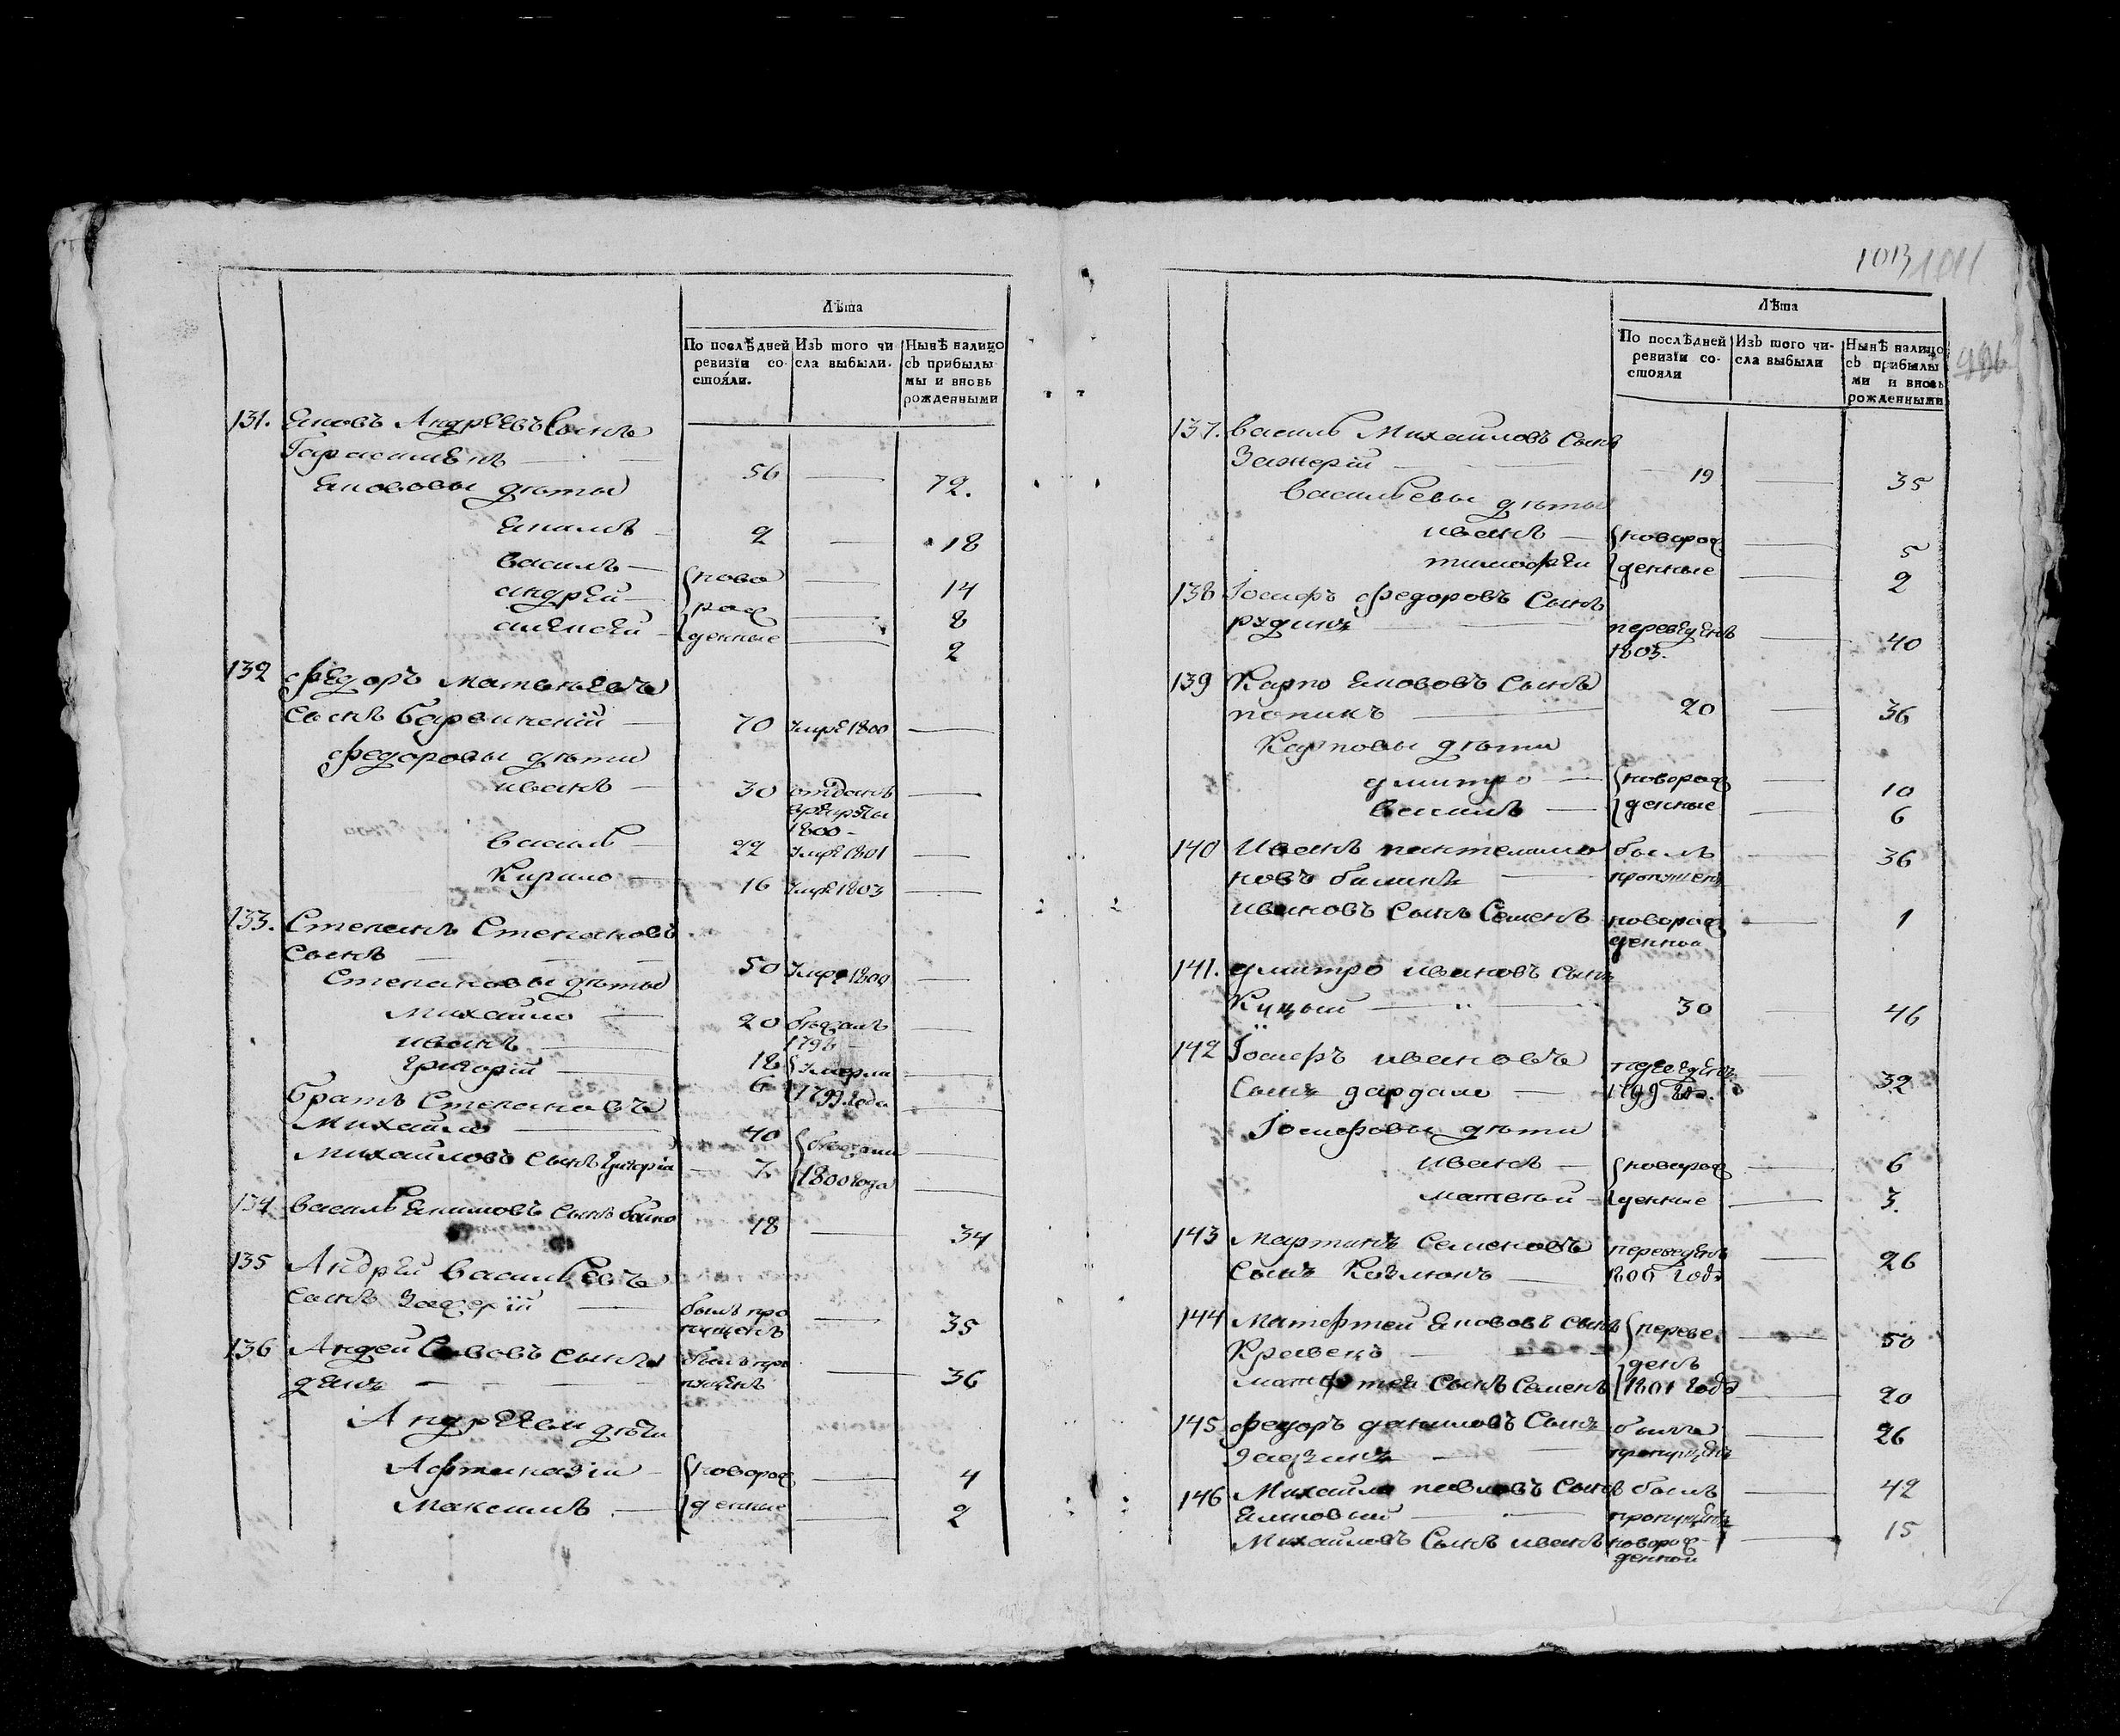 Лѣта
По послѣдней ревизіи состояли.
Изъ того числа выбыли.
Нынѣ налицо съ прибылыми и вновь рожденными
131. Яковъ Андреевъ Сынъ
56 — 72.
Яkововы дѣты
2 — 18
василъ — ново — 14
андрей — рож — 8
алексей — денные — 2
132 федоръ матвѣевъ
сынъ — 70 умре 1800 —
федоровы дѣти
иванъ — 30 отданъ
в рекруты
1800 —
василь — 22 умре 1801 —
Кирило — 16 умре 1803 —
133. Степанъ Степановъ
сынъ — 50 умре 1800 —
Степановы дѣты
михайло — 20 бѣжалъ —
1796
иванъ — 18 умерли —
григорій — 6 1799 года —
братъ Степановъ
Михайло — 40 бѣжали —
михайловъ сынъ григорій — 7 1800 года —
134 василь Екимовъ сынъ бойко 18 — 34
135 Андрей васильевъ
сынъ — былъ пропущенъ — 35
136 Андей Савовъ сынъ былъ пропущенъ — 36
Андреем дѣти
Афтаназіи — новорож — 4
Максимъ — денные — 2
1013 1011
Лѣта
По послѣдней ревизіи состояли
Изъ того числа выбыли
Нынѣ налицо съ прибылыми и вновь рожденными
137. василь Михайловъ сынъ
19 — 35
васильевы дѣты
иванъ — новорож — 5
тимофеи денные — 2
138 Іосифъ федоровъ сынъ
переведенъ — 40
1805.
139 Карпо Яkововъ сынъ
попикъ — 20 — 36
Карповы дѣти
дмитро — новорож — 10
василъ — денные — 6
140 Иванъ пантелимо былъ — 36
новъ пропущенъ
ивановъ сынъ Семенъ новорож — 1
денной
141. дмитро ивановъ сынъ
Куцый — 30 — 46
142 Іосифъ ивановъ переведенъ — 32
сынъ — 1799 года.
Іосифовы дѣти
иванъ — новорож — 6
матвѣй — денные — 3.
143 Мартинъ семеновъ переведенъ — 26
сынъ — 1806 года
144 Матефтей Яkововъ сынъ переве — 50
Кравецъ — денъ
матефтея сынъ семенъ 1801 года — 20
145 федоръ даниловъ сынъ былъ — 26
пропущенъ
146 Михайло павловъ сынъ былъ — 42
пропущенъ
Михайловъ сынъ иванъ новорож — 15
денной